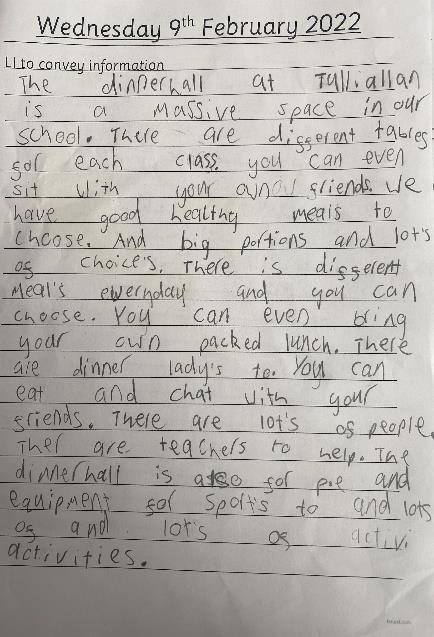 Wednesday 9th February 2022
LI to convey information
The dinnerhall at Tulliallan
is a massive space in our
school. There are different tables
for each class. you can even
sit with your own friends. We
have good healthy meals to
choose. And big portions and lots
of choice's. There is different
meal's eweryday and you can
choose. You can even bring
your own packed lunch. There
are dinner lady's to. You can
eat and chat with your
friends. There are lot's of people.
Ther are teachers to help. The
dinnerhall is also for p.e and
equipment for Sport's to and lots
of and lot's of activi
activities.